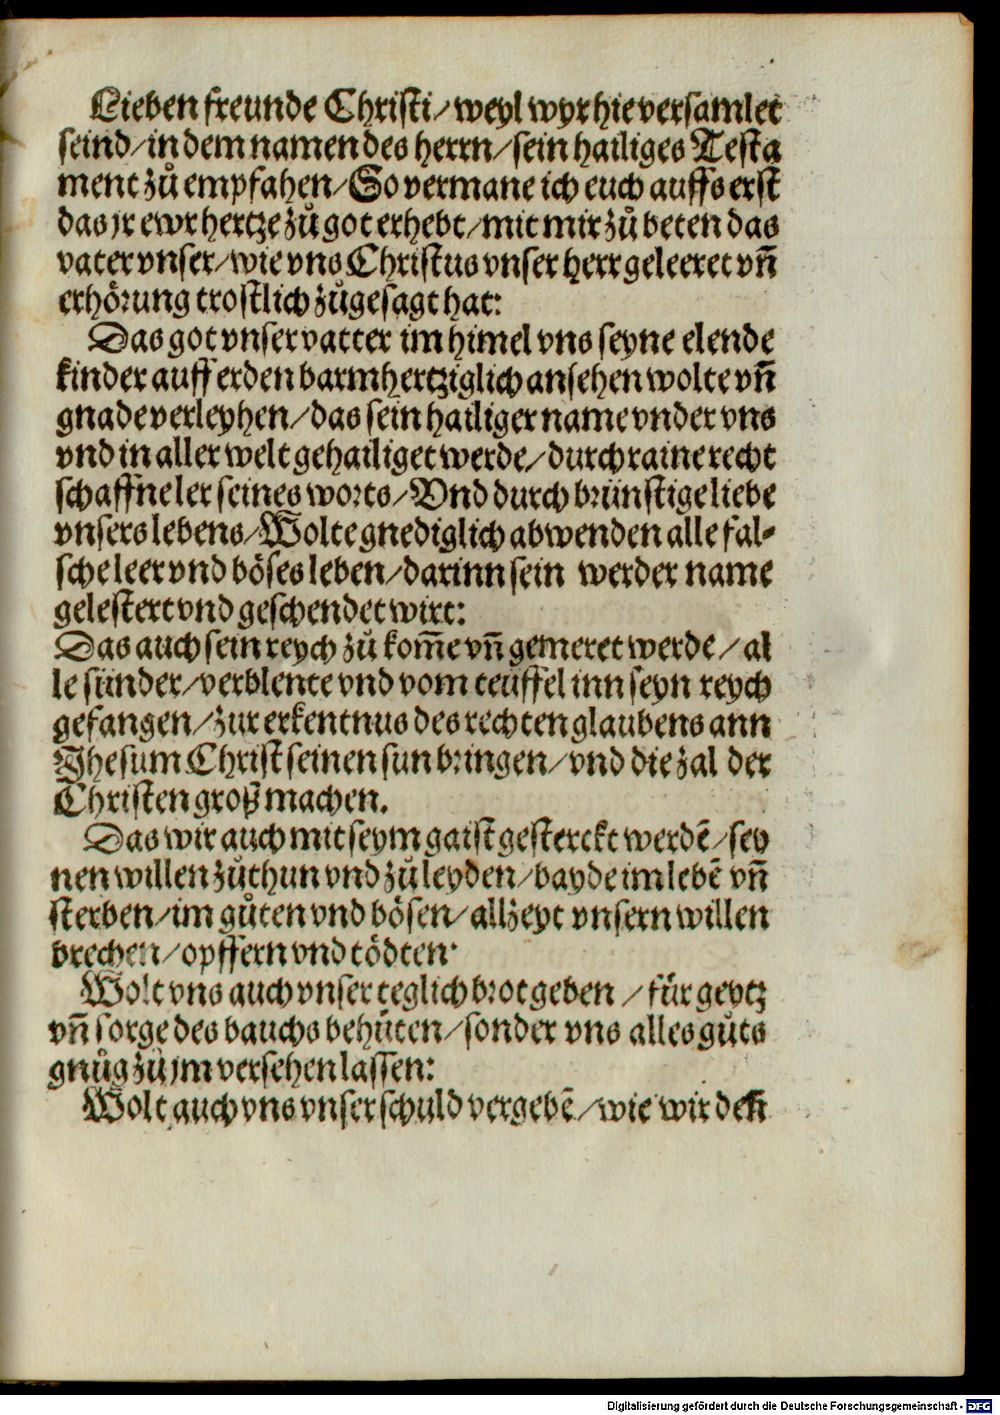 Lieben freunde Christi/ weyl wyr hie versamlet
seind/ in dem namen des herrn/ sein hailiges Testa
ment zů empfahen/ So vermane ich euch auffs erst
das jr ewr hertze zů got erhebt/ mit mir zů beten das
vater vnser/ wie vns Christus vnser herr geleeret vñ
erhörung trostlich zůgesagt hat:
Das got vnser vatter im himel vns seyne elende
kinder auff erden barmhertziglich ansehen wolte vñ
gnade verleyhen/ das sein hailiger name vnder vns
vnd in aller welt gehailiget werde/ durch raine recht
schaffne ler seines worts/ Vnd durch brünstige liebe
vnsers lebens/ Wolte gnediglich abwenden alle fal-
sche leer vnd böses leben/ darinn sein werder name
gelestert vnd geschendet wirt:
Das auch sein reych zů kom̃e vñ gemeret werde/ al
le sünder/ verblente vnd vom teüffel inn seyn reych
gefangen/ zur erkentnus des rechten glaubens ann
Jhesum Christ seinen sun bringen/ vnd die zal der
Christen groß machen.
Das wir auch mit seym gaist gesterckt werdẽ/ sey
nen willen zůthun vnd zů leyden/ bayde im lebẽ vñ
sterben/ im gůten vnd bösen/ allzeyt vnsern willen
brechen/ opffern vnd tödten·
Wolt vns auch vnser teglich brot geben / für geytz
vñ sorge des bauchs behüten/ sonder vns alles gůts
gnůg zů jm versehen lassen:
Wolt auch vns vnser schuld vergebẽ/ wie wir deñ
Digitalisierung gefördert durch die Deutsche Forschungsgemeinschaft - DFG